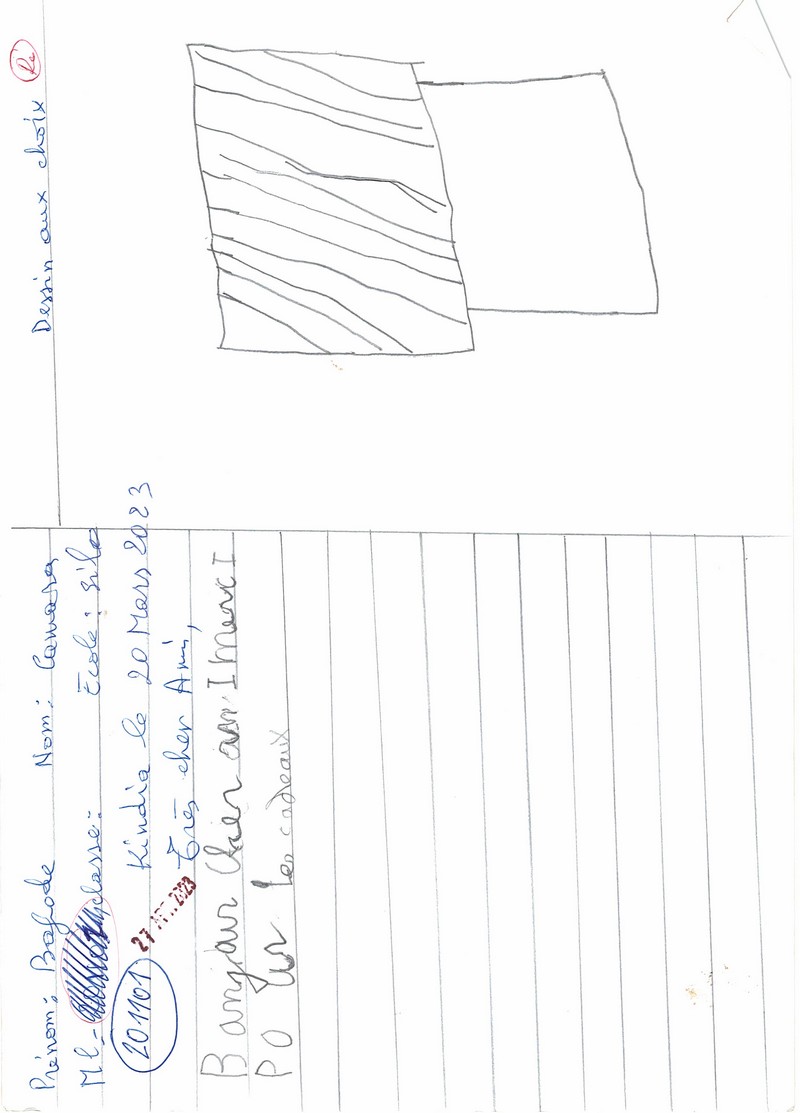 Dessin aux choix
Prénom: Bafode Nom: Camara
Ml - classe: École: Sila
Kindia le 20 Mars 2023
201101
Très cher Ami,
Banjour Cher ami Imerci
PO ur les cadeaux